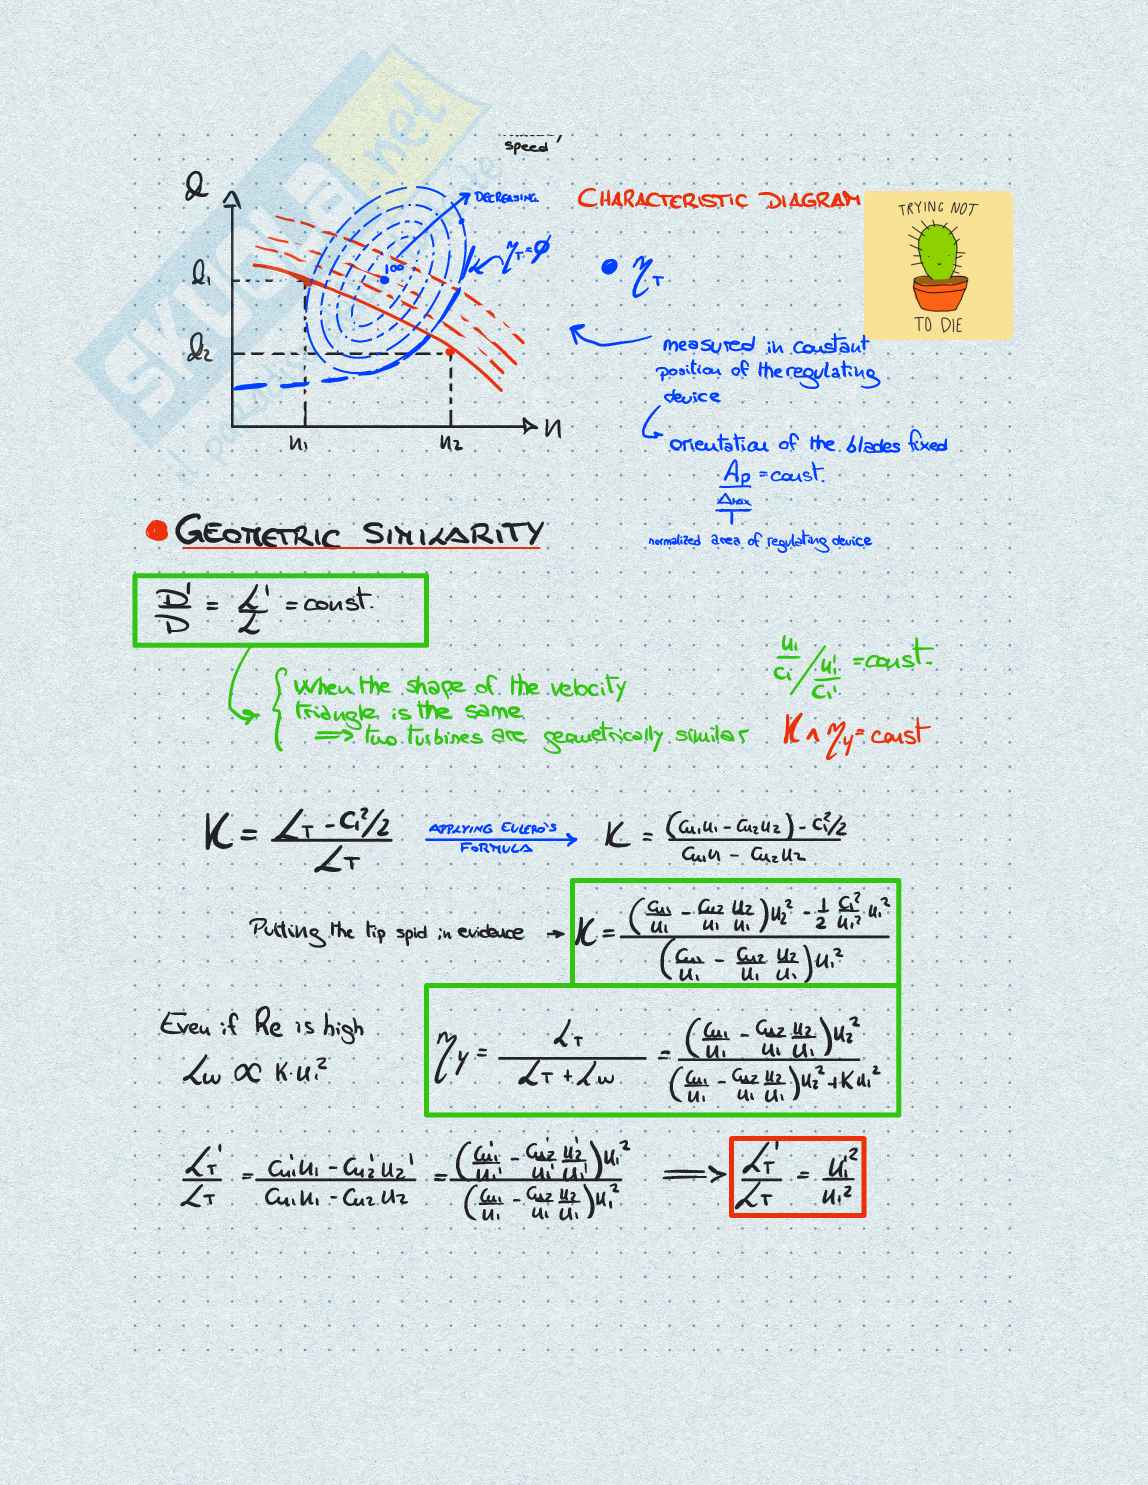 speed
Q
DECREASING
CHARACTERISTIC DIAGRAM
TRYING NOT
TO DIE
η_T = ϕ
100
Q₁
η_T
Q₂
measured in constant
position of the regulating
device
n
n₁
n₂
orientation of the blades fixed
Ap = const.
normalized area of regulating device
SKUOLA.net
• GEOMETRIC SIMILARITY
D'/D = L'/L = const.
u₁/c₁ / u₁'/c₁' = const.
When the shape of the velocity
triangle is the same
⇒ two turbines are geometrically similar
K ∧ η_y = const
K = (L_T - c₁²/2) / L_T
APPLYING EULERO'S
FORMULA
K = ((cu₁u₁ - cu₂u₂) - c₁²/2) / (cu₁u - cu₂u₂)
Putting the tip spid in evidence → K = ((cu₁/u₁ - cu₂/u₁ u₂/u₁)u₂² - 1/2 c₁²/u₁² u₁²) / ((cu₁/u₁ - cu₂/u₁ u₂/u₁)u₁²)
Even if Re is high
L_w ∝ K·u₁²
η_y = L_T / (L_T + L_w) = ((cu₁/u₁ - cu₂/u₁ u₂/u₁)u₂²) / ((cu₁/u₁ - cu₂/u₁ u₂/u₁)u₂² + K u₁²)
L_T'/L_T = (cu₁'u₁ - cu₂'u₂') / (cu₁u₁ - cu₂u₂) = ((cu₁'/u₁' - cu₂'/u₁' u₂'/u₁')u₁²) / ((cu₁/u₁ - cu₂/u₁ u₂/u₁)u₁²) ⇒ L_T'/L_T = u₁'²/u₁²